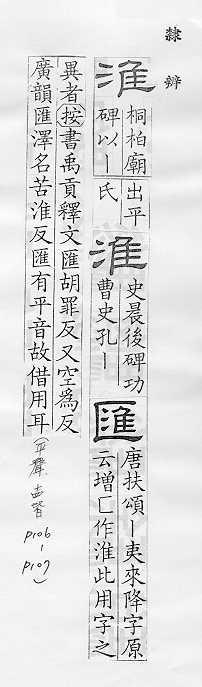 隸辨
淮
桐柏廟
碑以丨
出平
氏
淮
史晨後碑功
曹史孔丨
匯
唐扶頌丨夷來降字原
云增匚作淮此用字之
異者按書禹貢釋文匯胡罪反又空為反
廣韻匯澤名苦淮反匯有平音故借用耳
(平聲 P106-P107)